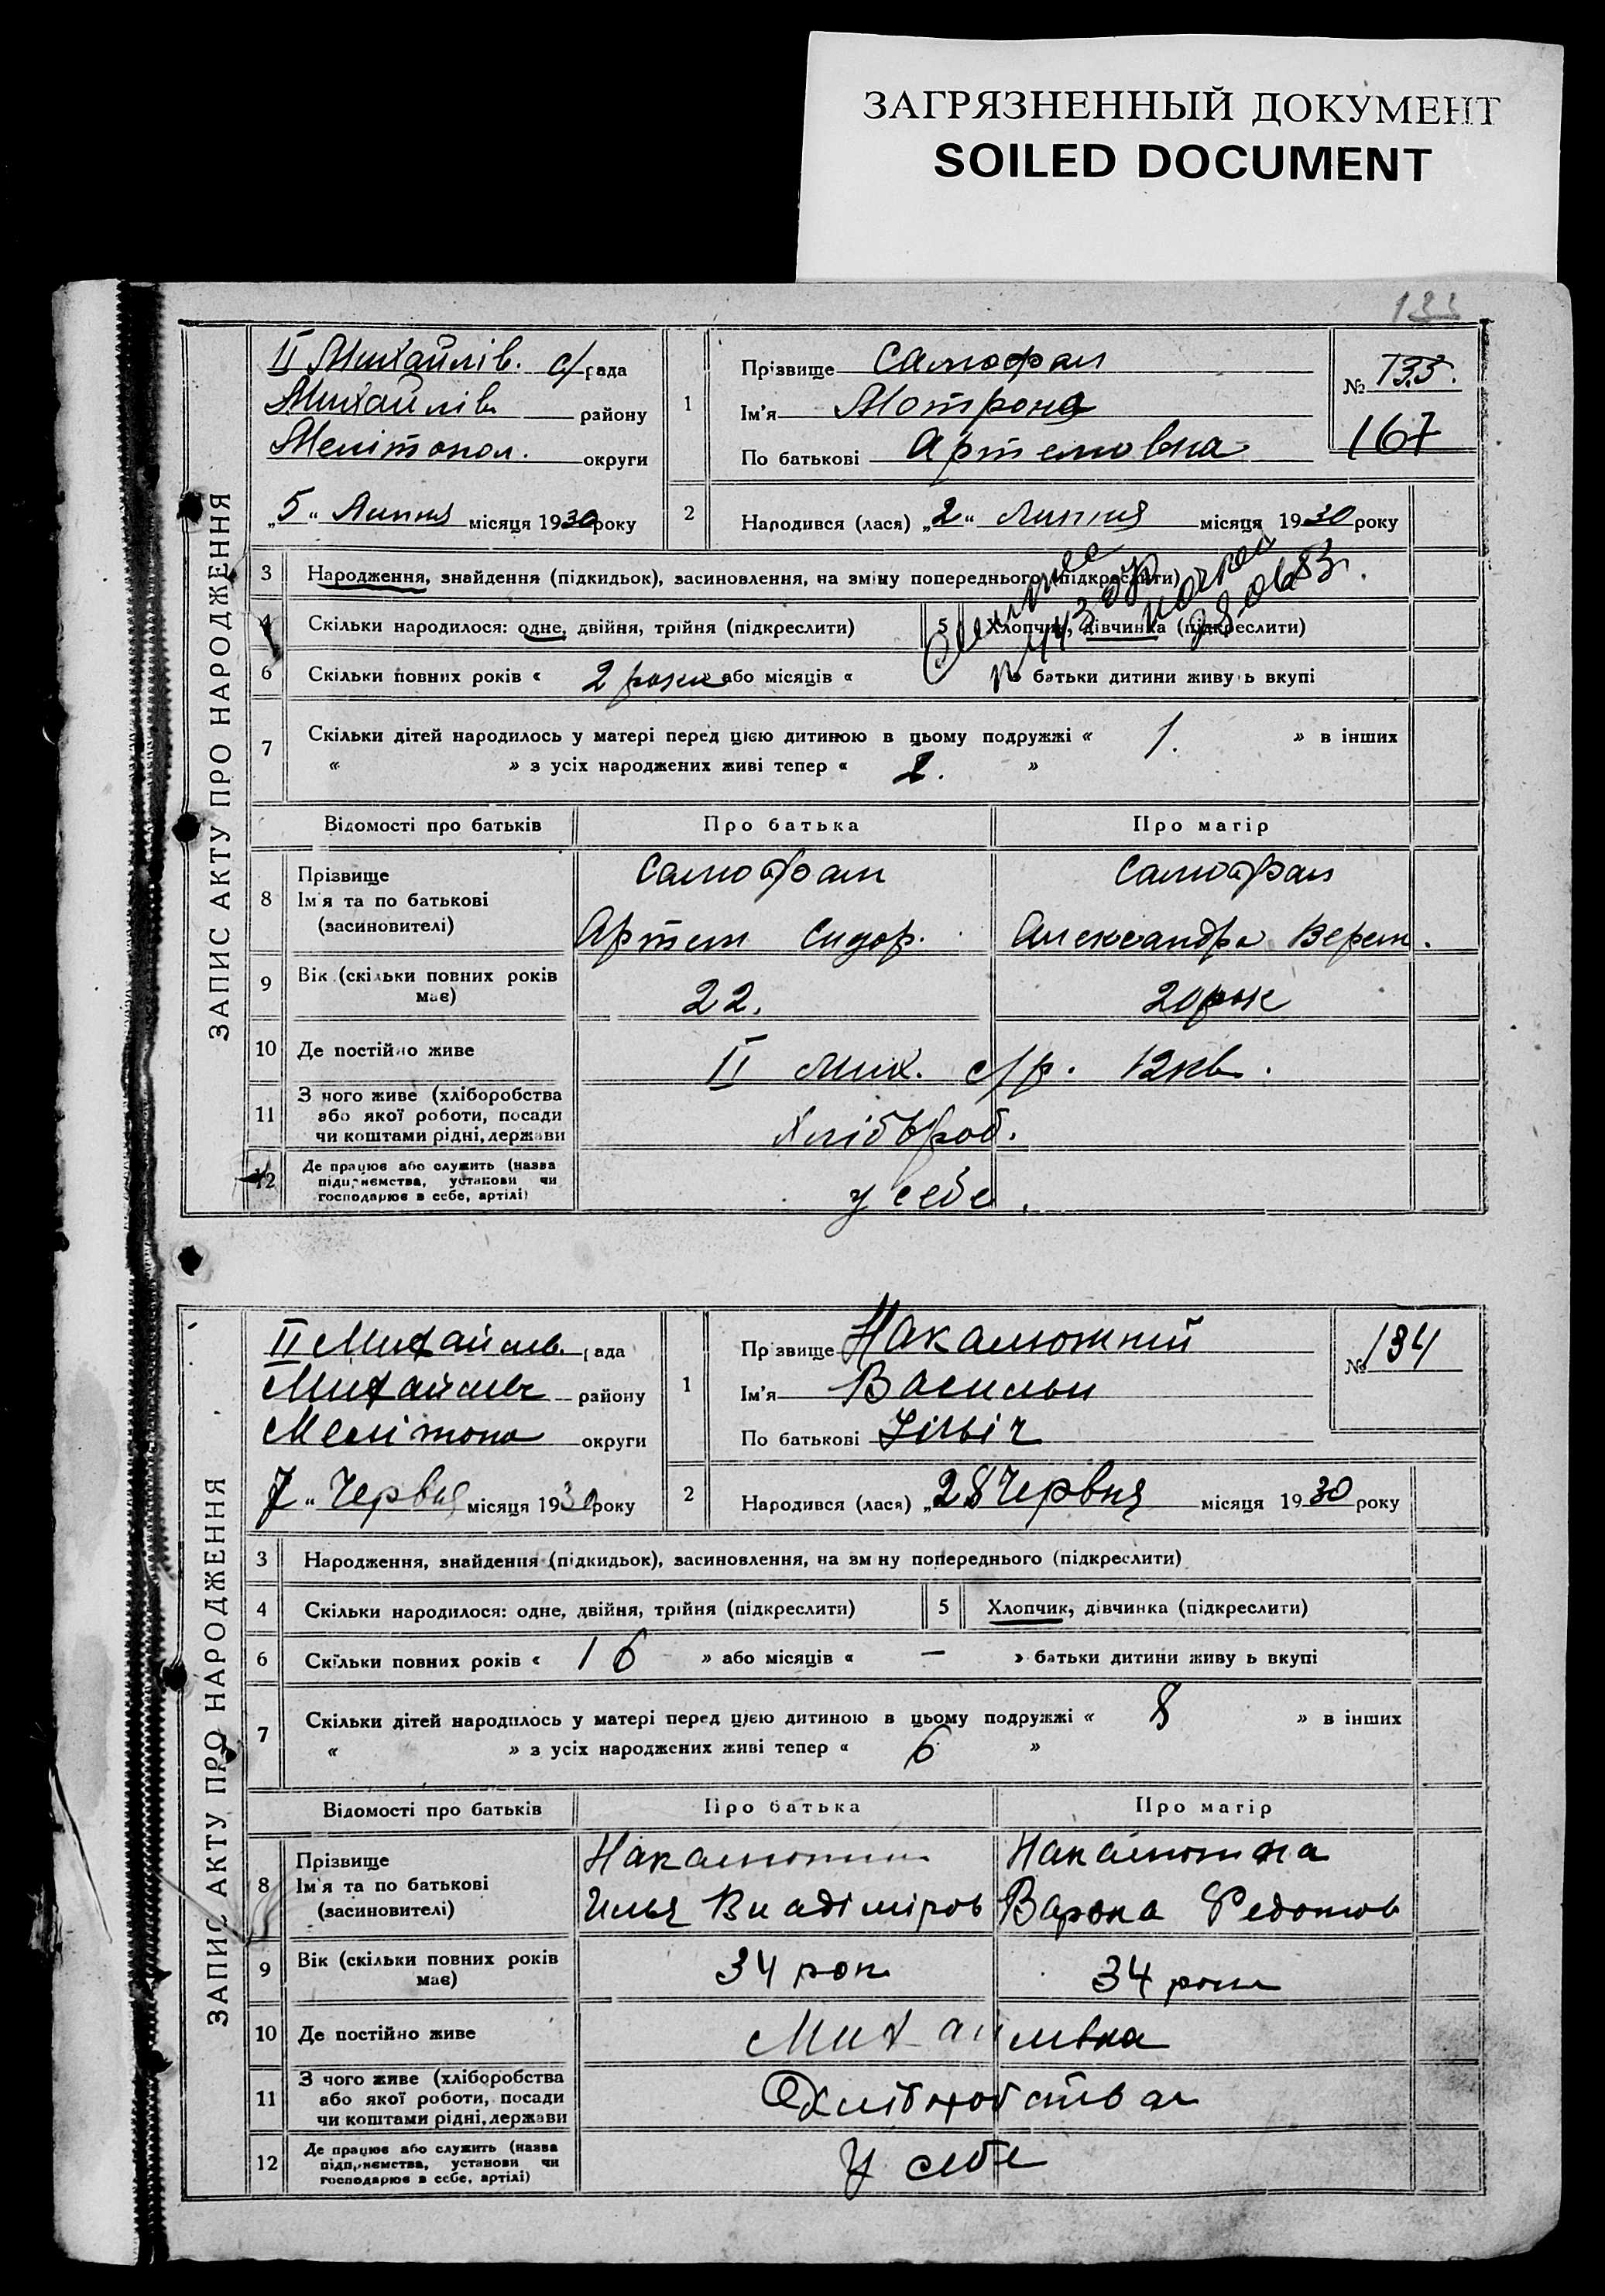 ЗАГРЯЗНЕННЫЙ ДОКУМЕНТ
SOILED DOCUMENT
133
ЗАПИС АКТУ ПРО НАРОДЖЕННЯ
II Михайлів. с/рада
Михайлів. району
Мелітопол. округи
„5" Липня місяця 1930 року
1 Прізвище Самофал
Ім'я Мотрона
По батькові Артемовна
№ 133.
167
2 Народився (лася) „2" Липня місяця 1930 року
3 Народження, знайдення (підкидьок), засиновлення, на зміну попереднього (підкреслити)
4 Скільки народилося: одне, двійня, трійня (підкреслити)
5 Хлопчик, дівчинка (підкреслити)
6 Скільки повних років « 2 роки або місяців « » батьки дитини живуть вкупі
7 Скільки дітей народилось у матері перед цією дитиною в цьому подружжі « 1. » в інших
« » з усіх народжених живі тепер « 2. »
Відомості про батьків Про батька Про матір
8 Прізвище
Ім'я та по батькові
(засиновителі)
Самофал Самофал
Артем Сидор. Александра Верем.
9 Вік (скільки повних років
має)
22. 20 рок
10 Де постійно живе II Мих. с/р. 12 кв.
11 З чого живе (хліборобства
або якої роботи, посади
чи коштами рідні, держави
Хлібороб.
12 Де працює або служить (назва
підприємства, установи чи
господарює в себе, артілі)
у себе.
ЗАПИС АКТУ ПРО НАРОДЖЕННЯ
II Михайлів. рада
Михайлів району
Мелітопо округи
7 " Червня місяця 1930 року
1 Прізвище Накалюжний
Ім'я Василы
По батькові Ілліч
№ 134
2 Народився (лася) „28 Червня місяця 1930 року
3 Народження, знайдення (підкидьок), засиновлення, на зміну попереднього (підкреслити)
4 Скільки народилося: одне, двійня, трійня (підкреслити)
5 Хлопчик, дівчинка (підкреслити)
6 Скільки повних років « 16 » або місяців « — » батьки дитини живуть вкупі
7 Скільки дітей народилось у матері перед цією дитиною в цьому подружжі « 8 » в інших
« » з усіх народжених живі тепер « 6 »
Відомості про батьків Про батька Про матір
8 Прізвище
Ім'я та по батькові
(засиновителі)
Накалюжни Накалюжна
Илья Владіміров Варвка Федотов
9 Вік (скільки повних років
має)
34 рок 34 роки
10 Де постійно живе Михайлівка
11 З чого живе (хліборобства
або якої роботи, посади
чи коштами рідні, держави
Охліборобствам
12 Де працює або служить (назва
підприємства, установи чи
господарює в себе, артілі)
У себе